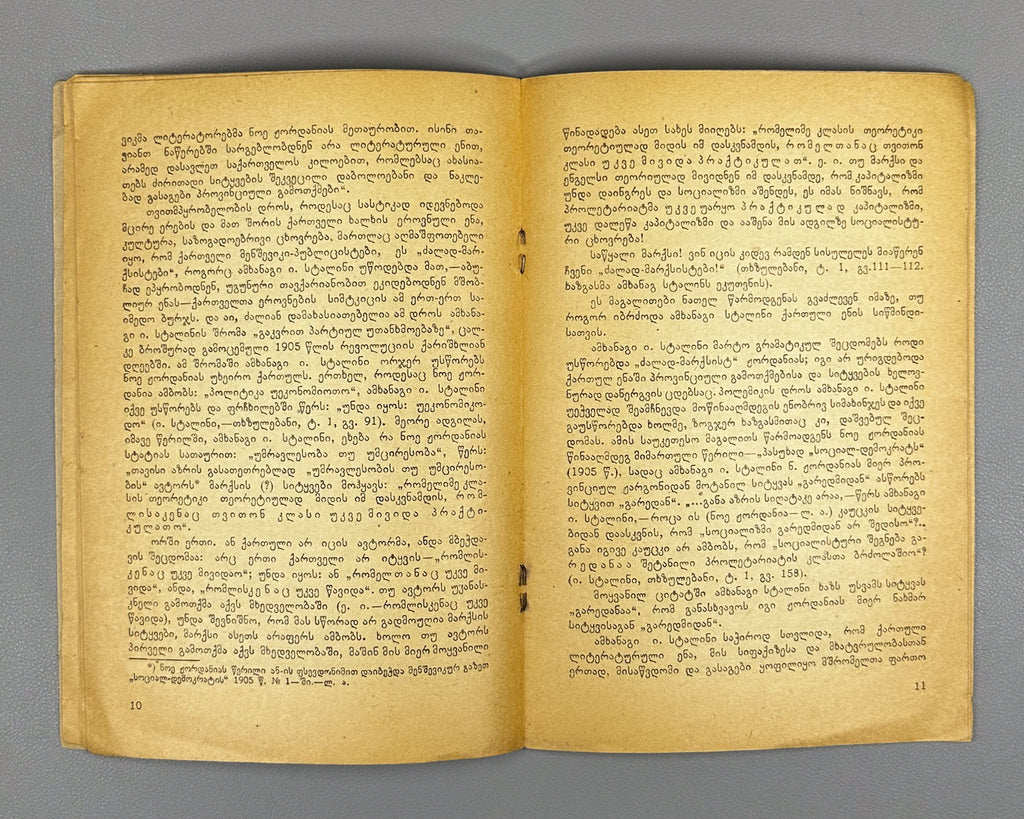 ვიკმა ლიტერატორებმა ნოე ჟორდანიას მეთაურობით. ისინი თა-
ვიანთ ნაწერებში სარგებლობდნენ არა ლიტერატურული ენით,
არამედ დასავლეთ საქართველოს კილოებით, რომლებსაც ახასია-
თებს ძირითადი სიტყვების შეკვეცილი დაბოლოებანი და ნაკლე-
ბად გასაგები პროვინციული გამოთქმები“.
თვითმპყრობელობის დროს, როდესაც სასტიკად იდევნებოდა
მცირე ერების და მათ შორის ქართველი ხალხის ეროვნული ენა,
კულტურა, საზოგადოებრივი ცხოვრება, მართლაც აღმაშფოთებელი
იყო, რომ ქართველი მენშევიკი-პუბლიცისტები, ეს „ძალად-მარ-
ქსისტები“, როგორც ამხანაგი ი. სტალინი უწოდებდა მათ,—აბუ-
ჩად ეპყრობოდნენ, უგუნური თავქარიანობით ეკიდებოდნენ მშობ-
ლიურ ენას—ქართველთა ეროვნების სიმტკიცის ამ ერთ-ერთ სა-
იმედო ბურჯს. და აი, ძალიან დამახასიათებელია ამ დროს ამხანა-
გი ი. სტალინის შრომა „გაკვრით პარტიულ უთანხმოებაზე“, ცალ-
კე ბროშურად გამოცემული 1905 წლის რევოლუციის ქარიშხლიან
დღეებში. ამ შრომაში ამხანაგი ი. სტალინი ორჯერ უსწორებს
ნოე ჟორდანიას უხეირო ქართულს. ერთხელ, როდესაც ნოე ჟორ-
დანია ამბობს: „პოლიტიკა უეკონომიოთო“, ამხანაგი ი. სტალინი
იქვე უსწორებს და ფრჩხილებში წერს: „უნდა იყოს: უეკონომიკო-
დო“ (ი. სტალინი,—თხზულებანი, ტ. 1, გვ. 91). მეორე ადგილას,
იმავე წერილში, ამხანაგი ი. სტალინი, ეხება რა ნოე ჟორდანიას
სტატიას სათაურით: „უმრავლესობა თუ უმცირესობა“, წერს:
„თავისი აზრის გასათეთრებლად „უმრავლესობის თუ უმცირესო-
ბის“ ავტორს* მარქსის (?) სიტყვები მოჰყავს: „რომელიმე კლა-
სის თეორეტიკი თეორეტიულად მიდის იმ დასკვნამდის, რ ო მ -
ლ ი ს ა კ ე ნ ა ც თ ვ ი თ ო ნ კ ლ ა ს ი უ კ ვ ე მ ი ვ ი დ ა პ რ ა ქ ტ ი -
კ უ ლ ა თ ო“.
ორში ერთი. ან ქართული არ იცის ავტორმა, ანდა მბეჭდა-
ვის შეცდომაა: არც ერთი ქართველი არ იტყვის—„რომლის-
კ ე ნ ა ც უკვე მივიდაო“; უნდა იყოს: ან „რომელ თ ა ნ ა ც უკვე მი-
ვიდა“, ანდა, „რომლისკ ე ნ ა ც უკვე წავიდა“. თუ ავტორს უკანას-
კნელი გამოთქმა აქვს მხედველობაში (ე. ი.—რომლისკენაც უკვე
წავიდა), უნდა შევნიშნო, რომ მას სწორად არ გადმოუღია მარქსის
სიტყვები, მარქსი ასეთს არაფერს ამბობს. ხოლო თუ ავტორს
პირველი გამოთქმა აქვს მხედველობაში, მაშინ მის მიერ მოყვანილი
*) ნოე ჟორდანიას წერილი ან-ის ფსევდონიმით დაიბეჭდა მენშევიკურ გაზეთ
„სოციალ-დემოკრატის“ 1905 წ. № 1—ში.—ლ. ა.
10
წინადადება ასეთ სახეს მიიღებს: „რომელიმე კლასის თეორეტიკი
თეორეტიულად მიდის იმ დასკვნამდის, რ ო მ ე ლ თ ა ნ ა ც თვითონ
კლასი უ კ ვ ე მ ი ვ ი დ ა პ რ ა ქ ტ ი კ უ ლ ა თ“. ე. ი. თუ მარქსი და
ენგელსი თეორიულად მივიდნენ იმ დასკვნამდე, რომ კაპიტალიზმი
უნდა დაინგრეს და სოციალიზმი აშენდეს, ეს იმას ნიშნავს, რომ
პროლეტარიატმა უ კ ვ ე უარყო პ რ ა ქ ტ ი კ უ ლ ა დ კაპიტალიზმი,
უკვე დალეწა კაპიტალიზმი და ააშენა მის ადგილზე სოციალისტუ-
რი ცხოვრება!
საწყალი მარქსი! ვინ იცის კიდევ რამდენ სისულელეს მიაწერენ
ჩვენი „ძალად-მარქსისტები!“ (თხზულებანი, ტ. 1, გვ.111—112.
ხაზგასმა ამხანაგ სტალინს ეკუთვნის).
ეს მაგალითები ნათელ წარმოდგენას გვაძლევენ იმაზე, თუ
როგორ იბრძოდა ამხანაგი სტალინი ქართული ენის სიწმინდი-
სათვის.
ამხანაგი ი. სტალინი მარტო გრამატიკულ შეცდომებს როდი
უსწორებდა „ძალად-მარქსისტ“ ჟორდანიას; იგი არ ურიგდებოდა
ქართულ ენაში პროვინციული გამოთქმებისა და სიტყვების ხელოვ-
ნურად დანერგვის ცდებსაც. პოლემიკის დროს ამხანაგი ი. სტალინი
უეჭველად შეამჩნევდა მოწინააღმდეგის ენობრივ სიმახინჯეს და იქვე
გაუსწორებდა ხოლმე, ზოგჯერ ხაზგასმითაც კი, დაშვებულ შეც-
დომას. ამის საუკეთესო მაგალითს წარმოადგენს ნოე ჟორდანიას
წინააღმდეგ მიმართული წერილი—„პასუხად „სოციალ-დემოკრატს“
(1905 წ.), სადაც ამხანაგი ი. სტალინი ნ. ჟორდანიას მიერ პრო-
ვინციულ ჟარგონიდან მოტანილ სიტყვას „გარედმიდან“ ასწორებს
სიტყვით „გარედან“. „...განა აზრის სიღატაკე არაა,—წერს ამხანაგი
ი. სტალინი,—როცა ის (ნოე ჟორდანია—ლ. ა.) კაუცკის სიტყვე-
ბიდან დაასკვნის, რომ „სოციალიზმი გარედმიდან არ შედისო“?..
განა იგივე კაუცკი არ ამბობს, რომ „სოციალისტური შეგნება გა-
რ ე დ ა ნ ა ა შეტანილი პროლეტარიატის კლასთა ბრძოლაშიო“?
(ი. სტალინი, თხზულებანი, ტ. 1, გვ. 158).
მოყვანილ ციტატში ამხანაგი სტალინი ხაზს უსვამს სიტყვას
„გარედანაა“, რომ განასხვავოს იგი ჟორდანიას მიერ ნახმარ
სიტყვისაგან „გარედმიდან“.
ამხანაგი ი. სტალინი საჭიროდ სთვლიდა, რომ ქართული
ლიტერატურული ენა, მის სიფაქიზესა და მხატვრულობასთან
ერთად, მისაწვდომი და გასაგები ყოფილიყო მშრომელთა ფართო
11